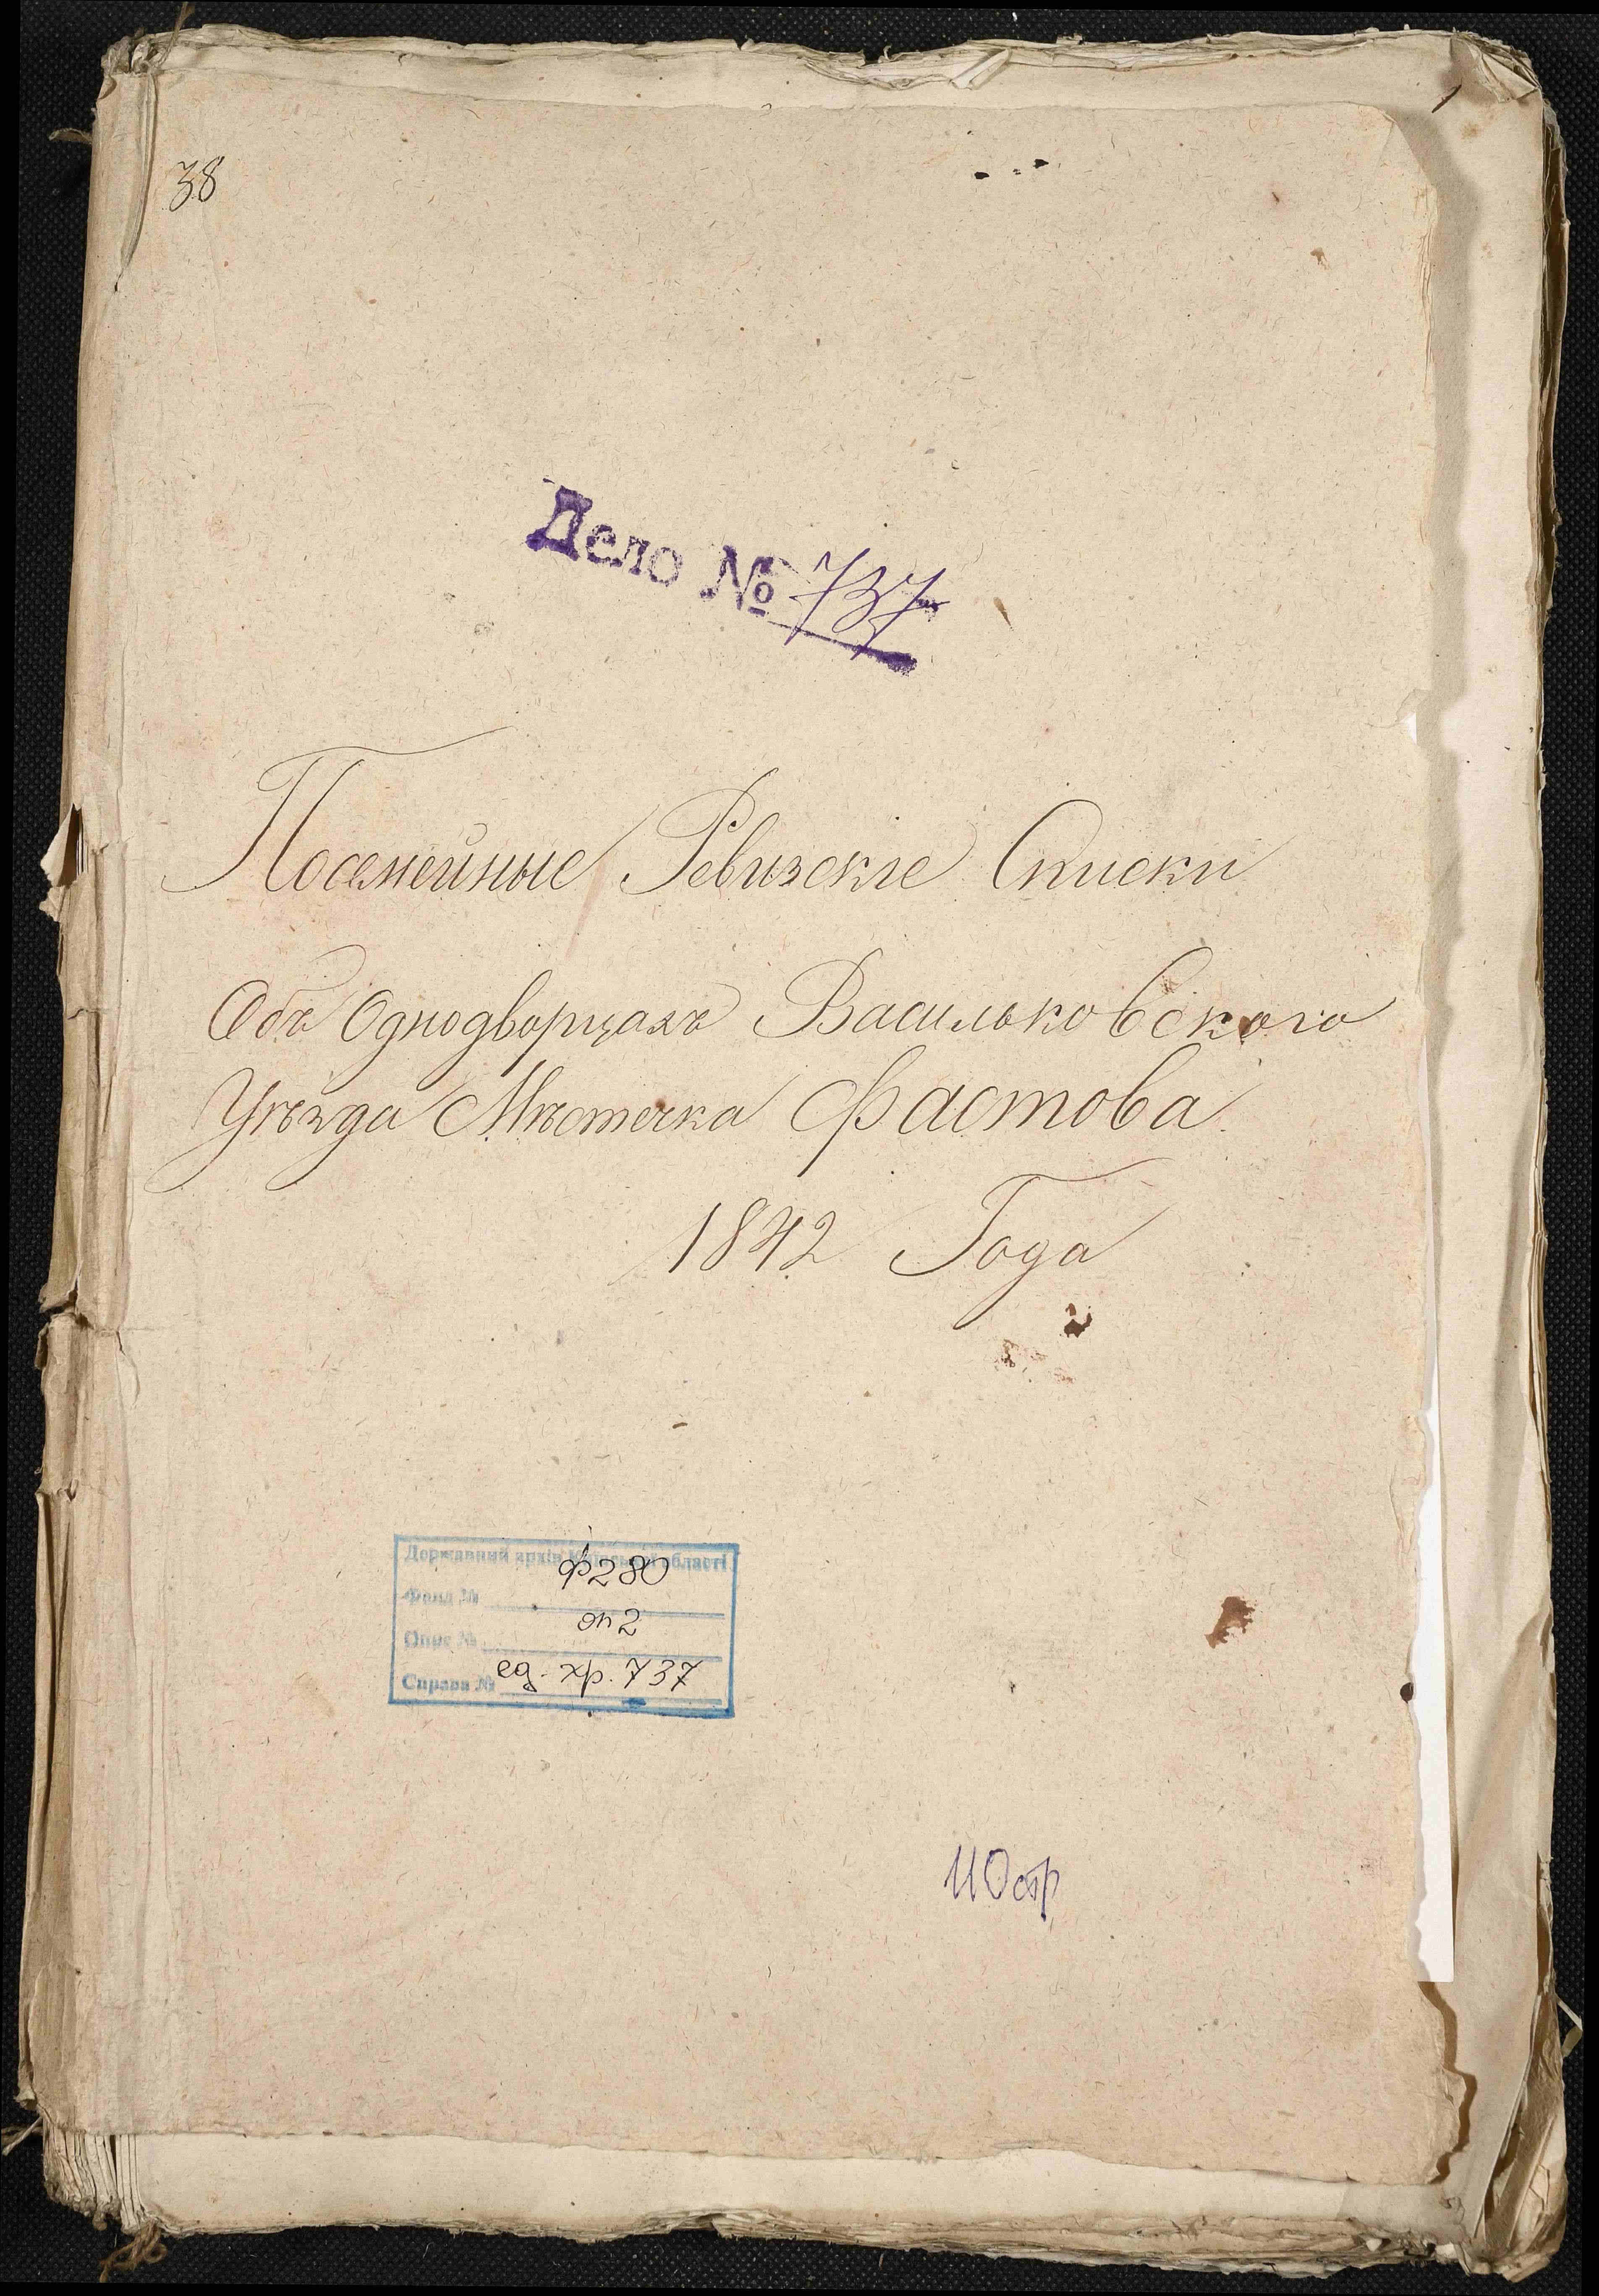 38
Дело № 737
Посемейные Ревизскіе Списки
Объ Однодворцахъ Васильковского
Уѣзда Мѣстечка Фастова
1842 Года
Державний архів Київської області
ф 280
Фонд №
оп 2
Опис №
Справа № ед. хр. 737
110 стр